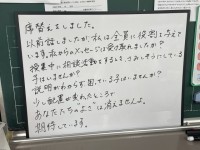 席替えをしました。
以前話しましたが、私は全員に役割を与えて
います。私からのメッセージは受け取れましたか？
授業中に相談活動をするとき、さみしそうにしている
子はいませんか？
説明がわからず困っている子はいませんか？
少し配慮が失われたところで
あなたたちの“よさ”は消えませんよ。
期待しています。